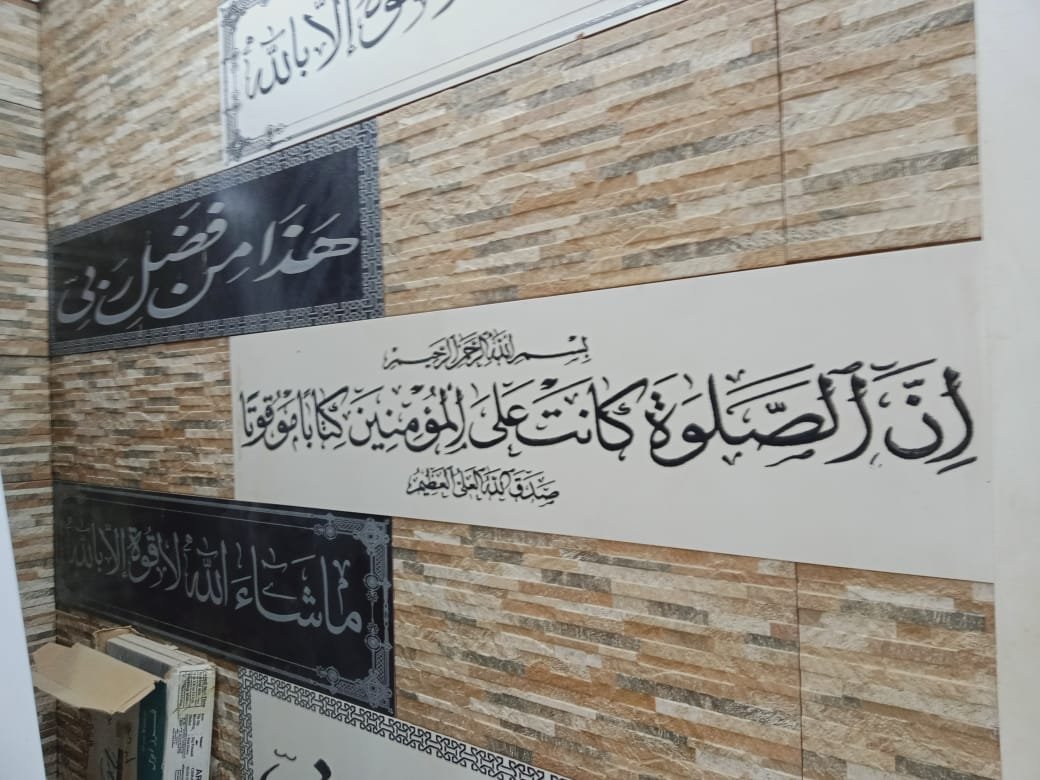 قوة إلا بالله
هَذَا مِن فَضْلِ رَبِّي
بِسْمِ اللَّهِ الرَّحْمَنِ الرَّحِيمِ
إِنَّ ٱلصَّلَوٰةَ كَانَتْ عَلَى ٱلْمُؤْمِنِينَ كِتَابًا مَوْقُوتًا
صَدَقَ اللَّهُ الْعَلِيُّ الْعَظِيمُ
مَا شَاءَ اللَّه لَا قُوةَ إِلَّا بِاللَّه